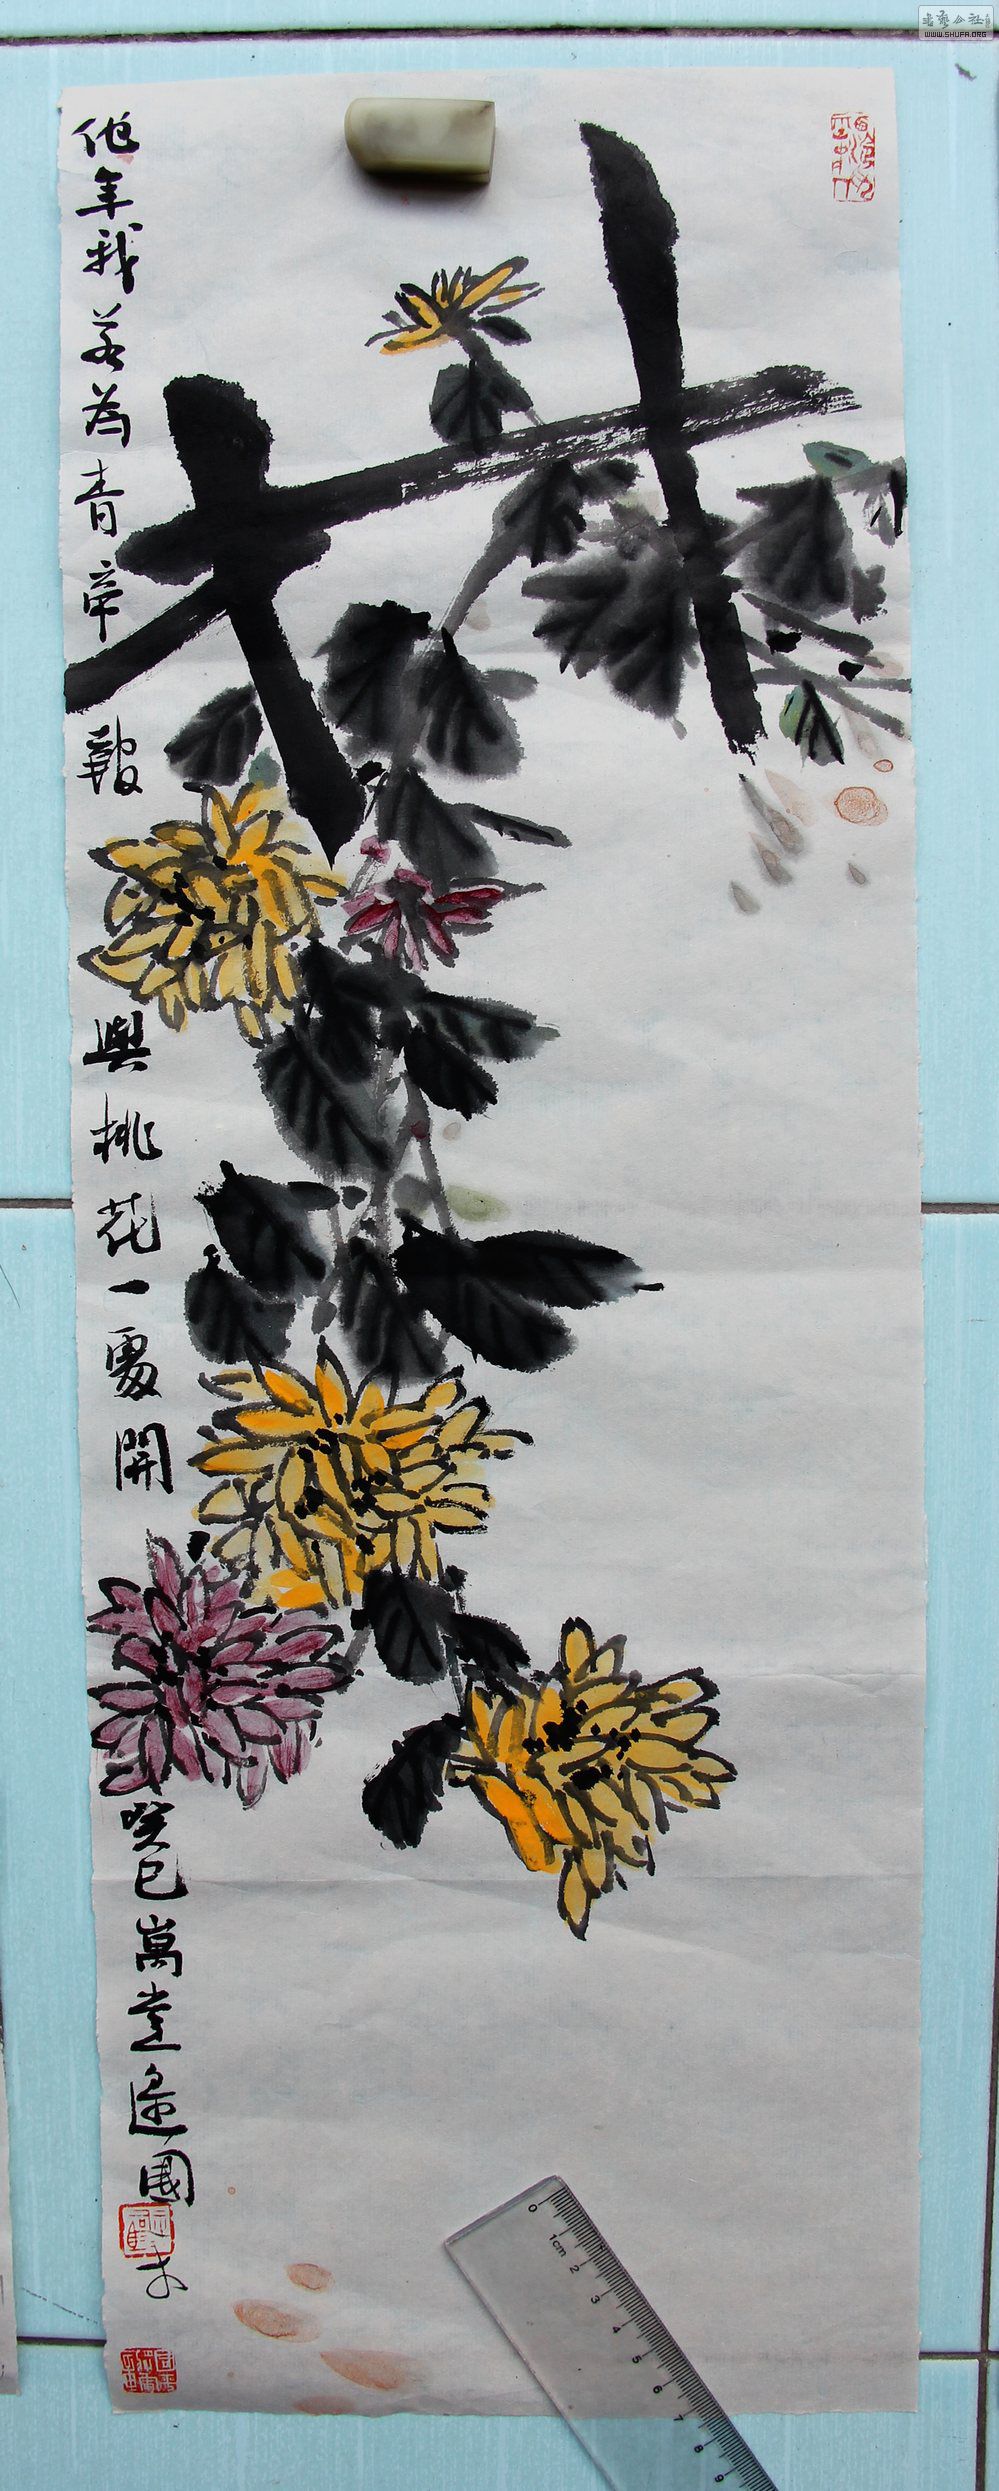 書藝公社
WWW.SHUFA.ORG
他年我若為青帝
報
與桃花一處開
癸巳
國
0 1cm 2 3 4 5 6 7 8 9